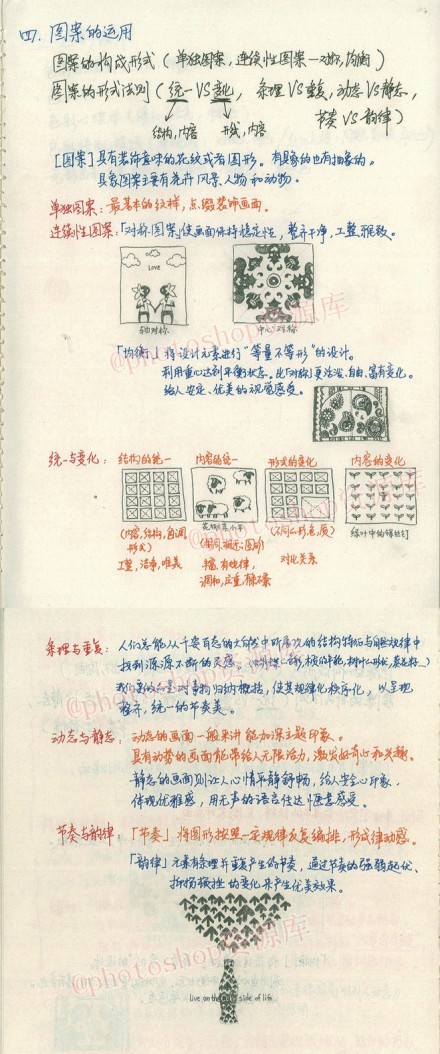 四. 图案的运用
图案的构成形式（单独图案，连续性图案—对称，均衡）
图案的形式法则（统一VS变化，条理VS重复，动态VS静态，
节奏VS韵律）
结构，内容 形式，内容
[图案]具有装饰意味的花纹或者图形。有具象的也有抽象的。
具象图案主要有花卉 风景、人物和动物。
单独图案：最基本的纹样，点缀装饰画面。
连续性图案：「对称图案」使画面保持稳定性，整齐干净，工整雅致。
LOVE
轴对称 中心对称
「均衡」将设计元素进行"等量不等形"的设计。
利用重心达到平衡状态。比「对称」更活泼、自由、富有变化。
给人安定、优美的视觉感受。
统一与变化： 结构的统一 内容的统一 形式的变化 内容的变化
（内容，结构，色调 （不同大小，形，色，质） 绿叶中的
形式）
工整，洁净，唯美 对比关系
丰富，有旋律，
调和，庄重，
条理与重复： 人们总能从千姿百态的大自然中所展现的结构特征与自然规律中
找到源源不断的灵感。
我们要做的是对事物归纳概括，使其规律化秩序化，以呈现
整齐，统一的节奏美。
动态与静态： 动态的画面一般来讲能加深主题印象。
具有动势的画面能带给人无限活力，激发好奇心和兴趣。
静态的画面则让人心情平静舒畅，给人安全心印象，
体现优雅感，用无声的语言传达惬意感受。
节奏与韵律：「节奏」将图形按照一定规律反复编排，形成律动感。
「韵律」元素有条理并重复产生的节奏，通过节奏的强弱起伏、
抑扬顿挫的变化来产生优美效果。
live on the side of life
@photoshop资源库
@photoshop资源库
@photoshop资源库
@photoshop资源库